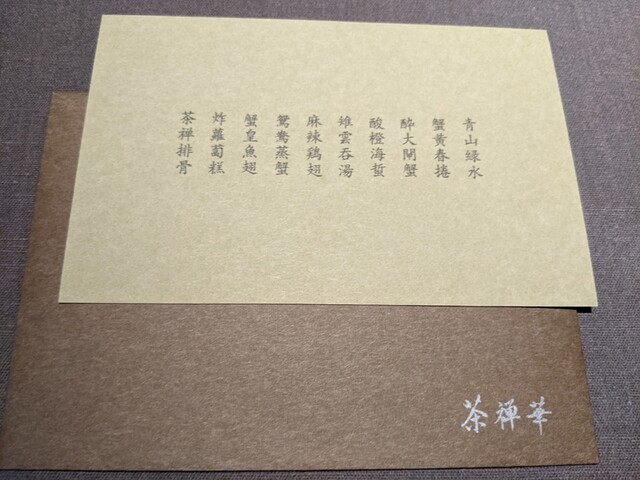 青山緑水
蟹黄春捲
酔大閘蟹
酸橙海蜇
雉雲呑湯
麻辣鶏翅
鴛鴦蒸蟹
蟹皇魚翅
炸蘿蔔糕
茶禅排骨
茶禅華